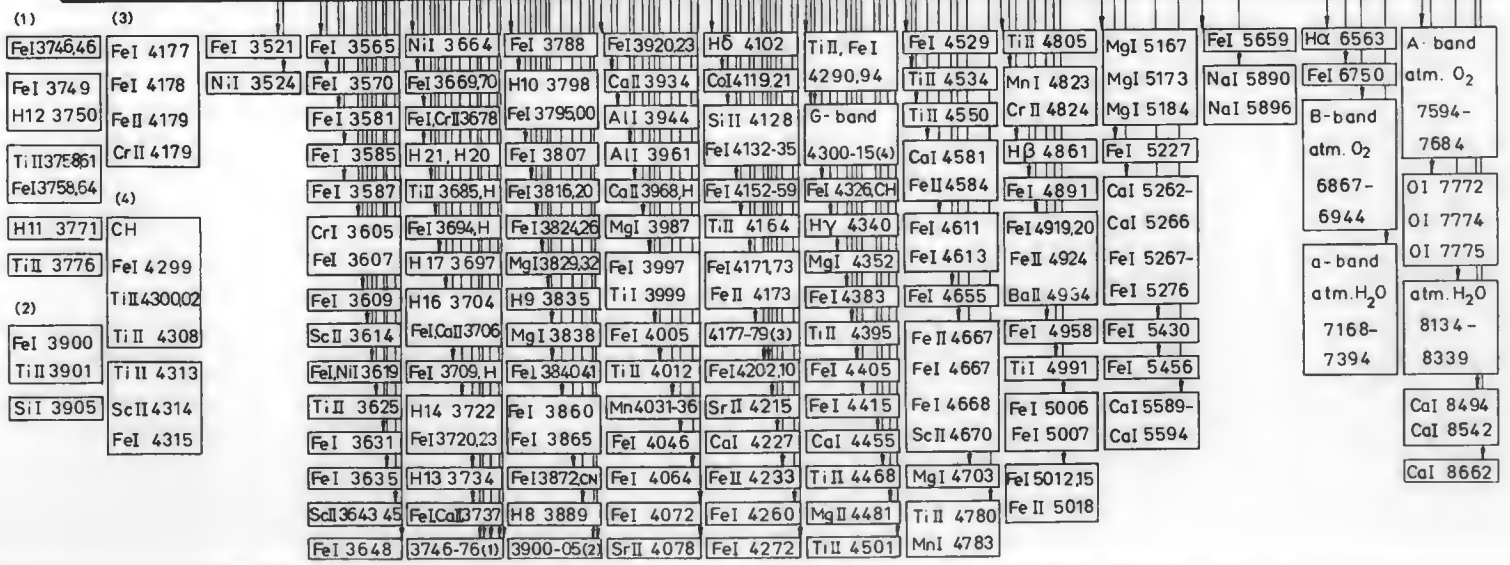 (1)
FeI 3746,46
FeI 3749
H12 3750
TiII 3758,61
FeI 3758,64
H11 3771
TiII 3776
(2)
FeI 3900
TiII 3901
SiI 3905
(3)
FeI 4177
FeI 4178
FeII 4179
CrII 4179
(4)
CH
FeI 4299
TiII 4300,02
TiII 4308
TiII 4313
ScII 4314
FeI 4315
FeI 3521
NiI 3524
FeI 3565
FeI 3570
FeI 3581
FeI 3585
FeI 3587
CrI 3605
FeI 3607
FeI 3609
ScII 3614
FeI,NiI 3619
TiII 3625
FeI 3631
FeI 3635
ScII 3643 45
FeI 3648
NiI 3664
FeI 3669,70
FeI,CrII 3678
H21, H20
TiII 3685,H
FeI 3694,H
H17 3697
H16 3704
FeI,CaII 3706
FeI 3709,H
H14 3722
FeI 3720,23
H13 3734
FeI,CaII 3737
3746-76(1)
FeI 3788
H10 3798
FeI 3795,00
FeI 3807
FeI 3816,20
FeI 3824,26
MgI 3829,32
H9 3835
MgI 3838
FeI 3840 41
FeI 3860
FeI 3865
FeI 3872,CN
H8 3889
3900-05(2)
FeI 3920,23
CaII 3934
AlI 3944
AlI 3961
CaII 3968,H
MgI 3987
FeI 3997
TiI 3999
FeI 4005
TiII 4012
Mn 4031-36
FeI 4046
FeI 4064
FeI 4072
SrII 4078
Hδ 4102
CoI 4119.21
SiII 4128
FeI 4132-35
FeI 4152-59
TiII 4164
FeI 4171,73
FeII 4173
4177-79(3)
FeI 4202,10
SrII 4215
CaI 4227
FeII 4233
FeI 4260
FeI 4272
TiII, FeI
4290,94
G-band
4300-15(4)
FeI 4326,CH
Hγ 4340
MgI 4352
FeI 4383
TiII 4395
FeI 4405
FeI 4415
CaI 4455
TiII 4468
MgII 4481
TiII 4501
FeI 4529
TiII 4534
TiII 4550
CaI 4581
FeII 4584
FeI 4611
FeI 4613
FeI 4655
FeII 4667
FeI 4667
FeI 4668
ScII 4670
MgI 4703
TiII 4780
MnI 4783
TiII 4805
MnI 4823
CrII 4824
Hβ 4861
FeI 4891
FeI 4919,20
FeII 4924
BaII 4934
FeI 4958
TiI 4991
FeI 5006
FeI 5007
FeI 5012,15
FeII 5018
MgI 5167
MgI 5173
MgI 5184
FeI 5227
CaI 5262-
CaI 5266
FeI 5267-
FeI 5276
FeI 5430
FeI 5456
CaI 5589-
CaI 5594
FeI 5659
NaI 5890
NaI 5896
Hα 6563
FeI 6750
B-band
atm. O₂
6867-
6944
a-band
atm. H₂O
7168-
7394
A-band
atm. O₂
7594-
7684
OI 7772
OI 7774
OI 7775
atm. H₂O
8134-
8339
CaI 8494
CaI 8542
CaI 8662